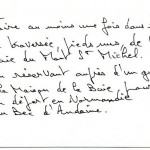 Faire au moins une fois dans
la traversée, pieds nus, de l
baie du Mont St Michel.
En réservant auprès d'un g
de la Maison de la Baie pour
un départ en Normandie
au Bec d'Andaine.